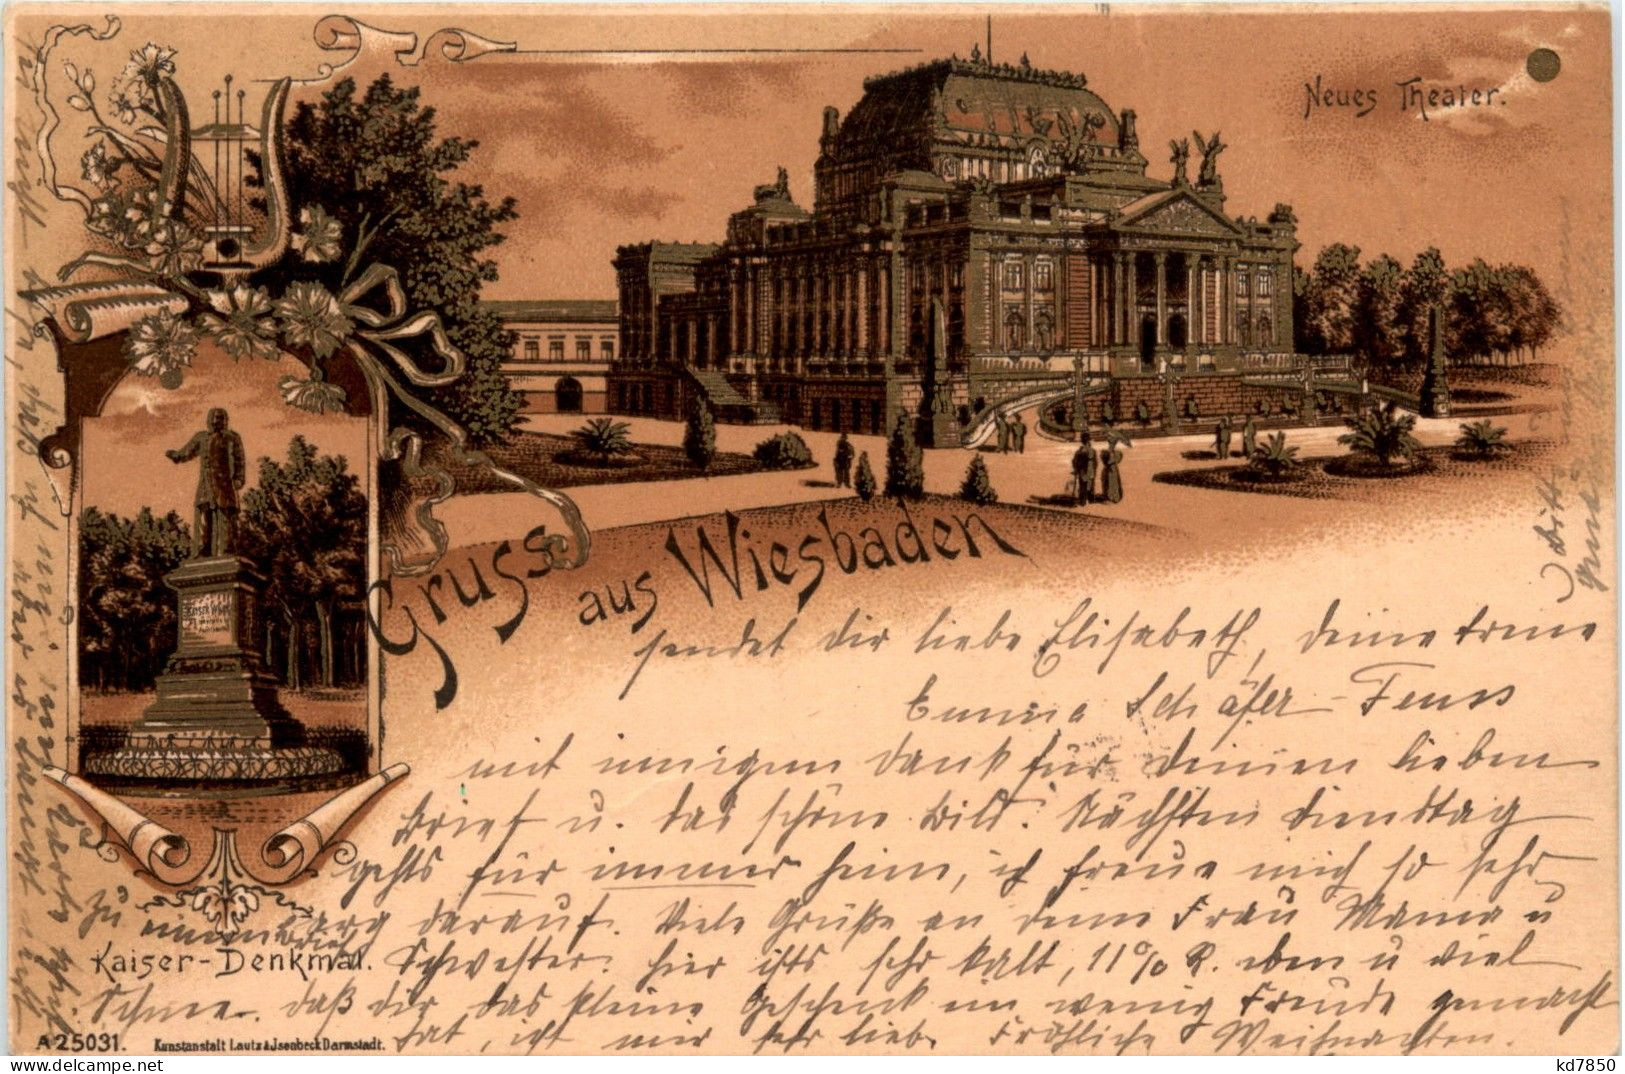 Neues Theater.
Gruss aus Wiesbaden
sendet dir liebe Elisabeth, deine treue
Emma Schäfer-Feuss
mit innigem Dank für deinen lieben
Brief u. das schöne Bild. Nächsten Dienstag
gehts für immer heim, ich freue mich so sehr
arg darauf. Viele Grüße an deine Frau Mama u
Schwester. hier ists sehr kalt, 11% R. eben u viel
Schnee. daß dir das kleine Geschenk ein wenig Freude gemacht
hat, ist mir sehr lieb. Fröhliche Weihnachten.
zu einem Brief
KAISER WILH.
Kaiser-Denkmal.
A 25031. Kunstanstalt Lautz & Jsenbeck Darmstadt.
kd7850